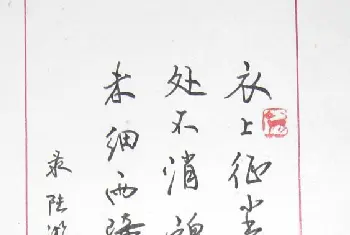 衣上征尘
处不消魂
未细雨骑
录陆游